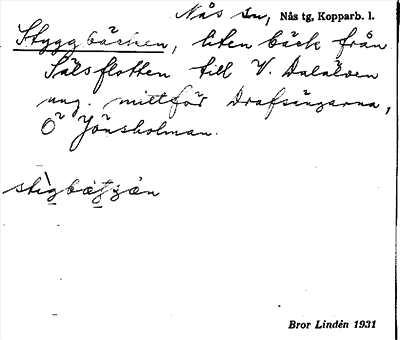 Nås sn, Nås tg, Kopparb. l.
Styggbäcken, liten bäck från
Sälsflotten till V. Dalälven
ung. mittför Drafsängarna,
Ö Jönsholman.
Bror Lindén 1931